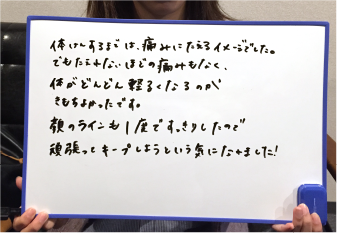 体けんするまでは、痛みにたえるイメージでした。
でもたえれないほどの痛みもなく、
体がどんどん軽くなるのが
きもちよかったです。
顔のラインも1度ですっきりしたので
頑張ってキープしようという気になれました!